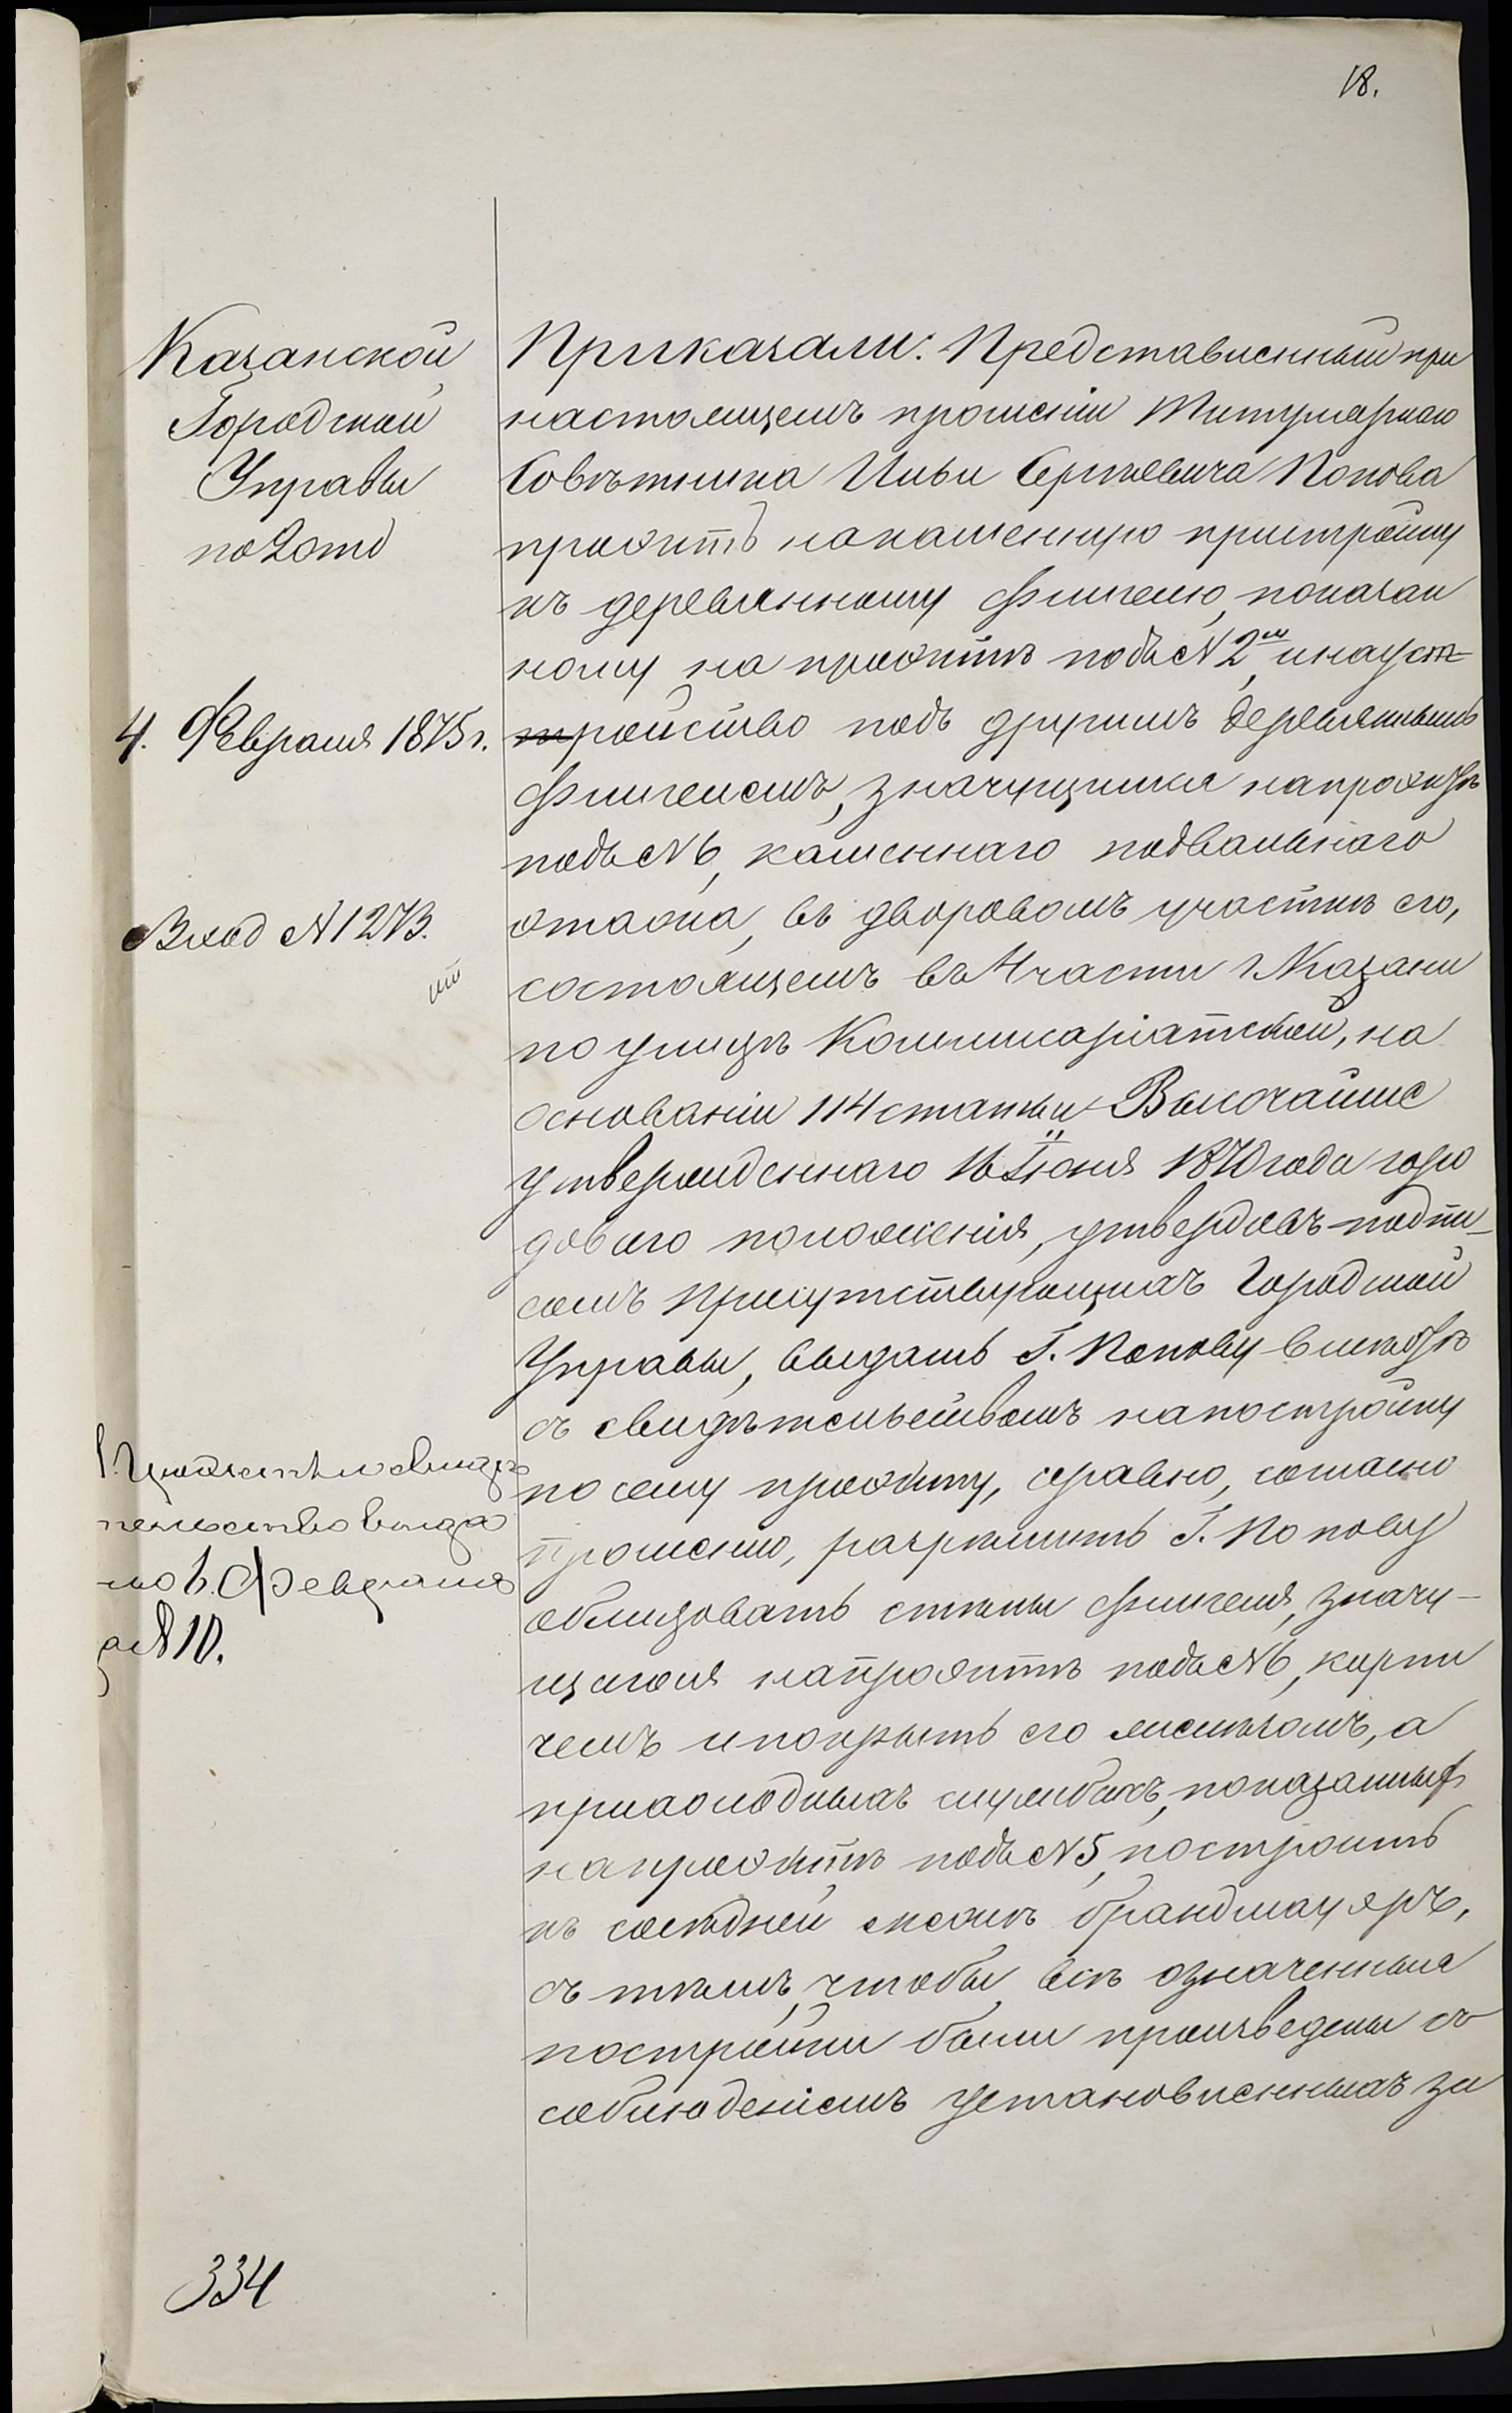 18.
Казанской
Городской
Управы
по 2 отд
4. Февраля 1875 г.
Вход № 1273.
1. Проэктъ и свидѣ
тельство выда
но 6. Февраля
за № 10.
334
Приказали: Представленный при
настоящемъ прошеніи Титулярнаго
Совѣтника Ильи Сергѣевича Попова
проэктъ на каменную пристройку
къ деревянному флигелю, показан
ному на проэктѣ подъ № 2мъ, и на уст-
ройство подъ другимъ деревяннымъ
флигелемъ, значущимся на проэктѣ
подъ № 6, каменнаго подвальнаго
этажа, въ дворовомъ участкѣ его,
состоящемъ въ 4 части г. Казани
по улицѣ Коммисаріатской, на
основаніи 114 статьи Высочайше
утвержденнаго 16 Іюня 1870 года горо
доваго положенія, утвердивъ подпи-
сомъ присутствующихъ Городской
Управы, выдать Г. Попову вмѣстѣ
съ свидѣтельствомъ на постройку
по сему проэкту, и равно, согласно
прошенію, разрѣшить Г. Попову
облицовать стѣны флигеля, значу-
щагося на проэктѣ подъ № 6, кирпи
чемъ и покрыть его желѣзомъ, а
при холодныхъ службахъ, показанныхъ
на проэктѣ подъ № 5, построить
къ сосѣдней межѣ брандмауэръ,
съ тѣмъ, чтобы всѣ означенныя
постройки были произведены съ
соблюденіемъ установленныхъ за